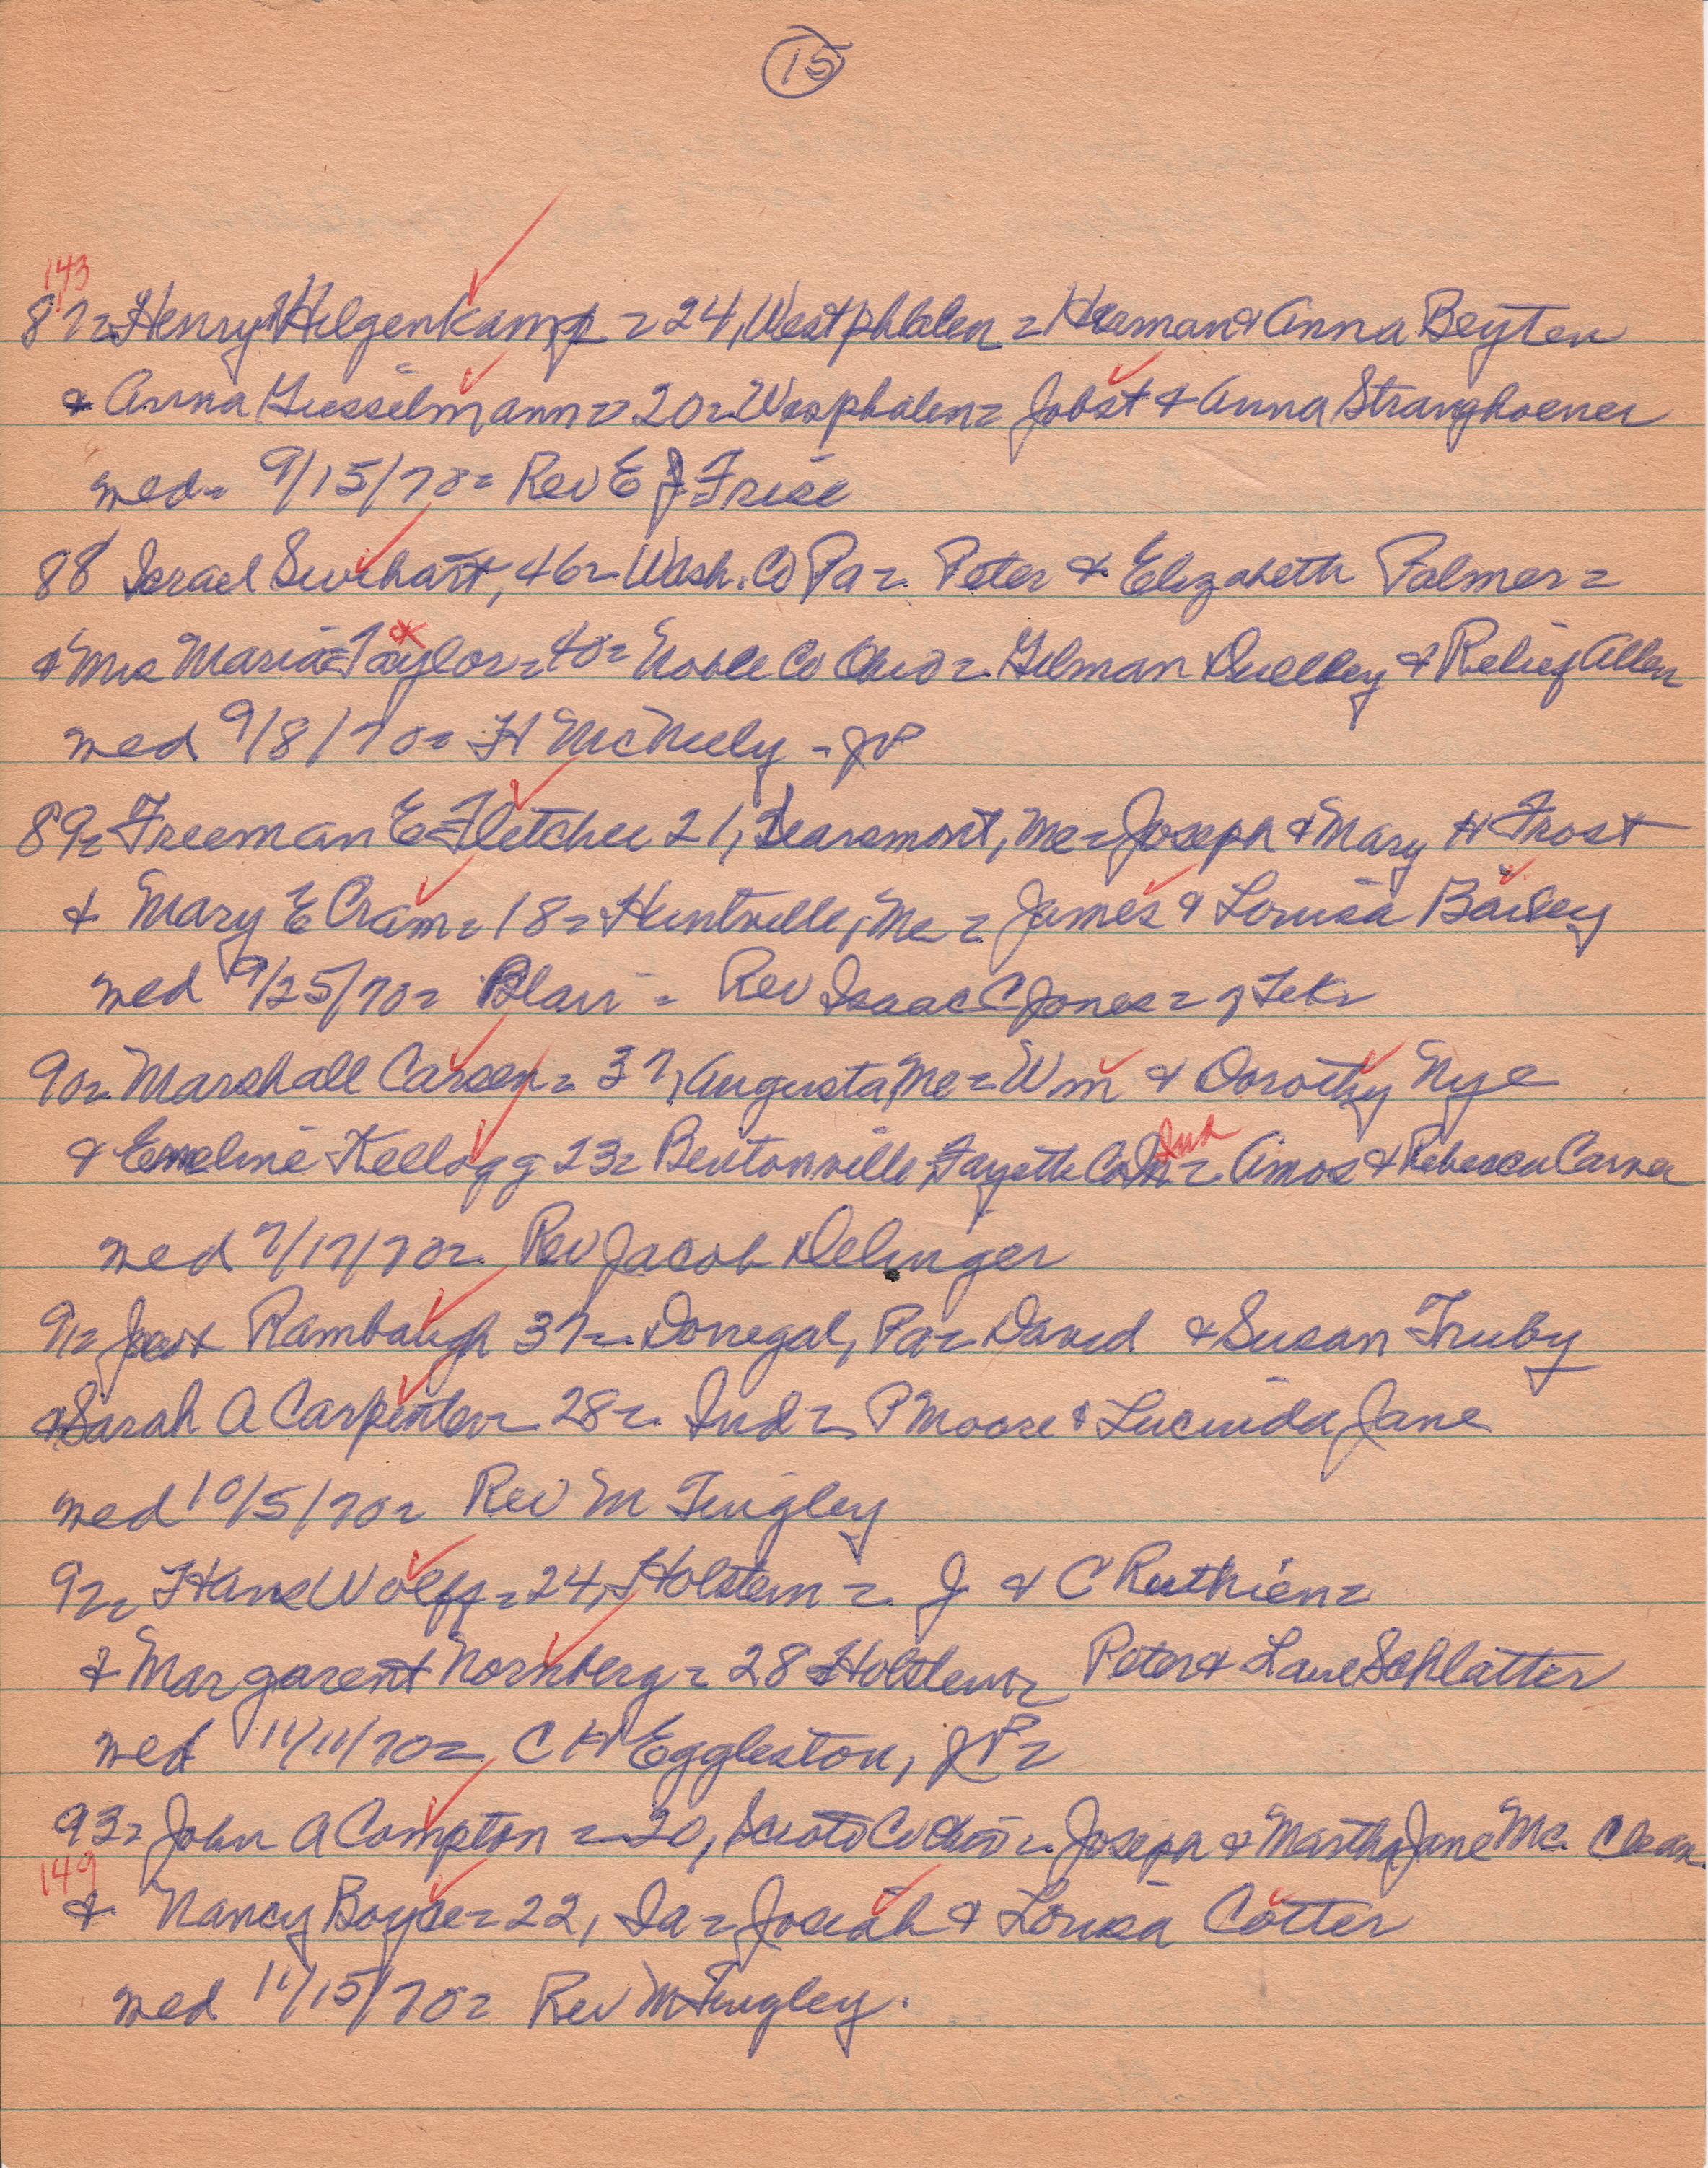 15
143
87= Henry Hilgenkamp = 24, Westphlalen = Herman & Anna Beyten
& Anna Giesselmann = 20 = Wesphalen = Jobst & Anna Stranghoener
wed = 9/15/70 = Rev E J Frise
88 Israel Swihart, 46 = Wash. Co Pa =. Peter & Elizabeth Palmer =
& Mrs Maria = Taylor = 40 = Noble Co Ohio =. Gilman Dudley & Relief Allen
wed 9/8/70 = H McNeely - JP
89= Freeman E Fletcher 21, Searsmont, Me = Joseph & Mary H Frost
& Mary E Cram = 18 = Huntville, Me = James & Louisa Bailey
wed 9/25/70 = Blair = Rev Isaac C Jones =
90=. Marshall Carsen = 37, Augusta, Me = Wm & Dorothy Nye
& Emeline Kellogg 23 = Bentonville, Fayette Co Ind =. Amos & Rebecca Carver
wed 7/17/70 =. Rev Jacob Delinger
91= Rambaugh 37 =. Donegal, Pa = David & Susan Truby
& Sarah A Carpenter = 28 =. Ind = P Moore & Lucinda Jane
wed 10/5/70 = Rev M Tingley
92= Hans Wolff = 24, Holstein =. J & C Ruthien =
& Margarent Nornberg = 28 Holstein = Peter & Schlatter
wed 11/11/70 = C H Eggleston, JP =
93= John A Compton = 20, Scioto Co Ohio =. Joseph & Martha Jane Mc. Clean
149
& Nancy Boyce = 22, Ia = Josiah & Louisa Cotter
wed 11/15/70 = Rev M Tingley.